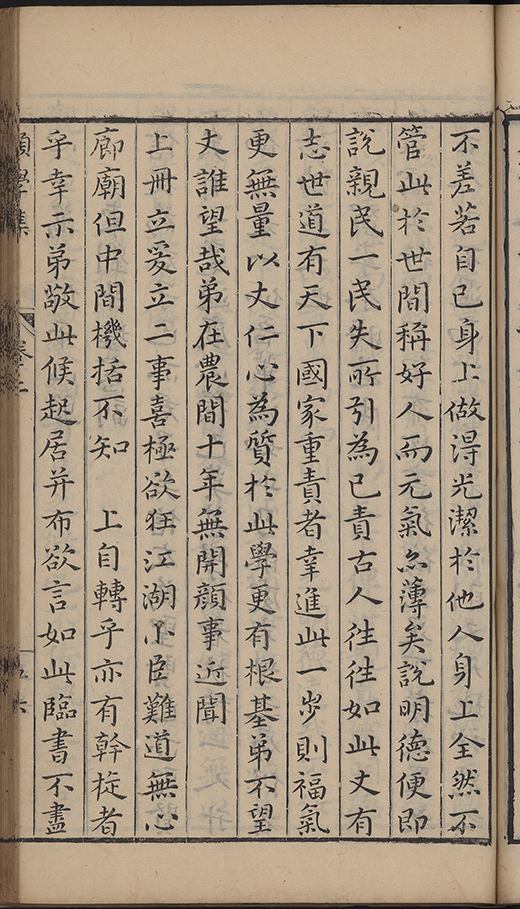 不差若自己身上做得光潔於他人身上全然不
管此於世間稱好人而元氣亦薄矣說明德便即
說親民一民失所引為己責古人往往如此丈有
志世道有天下國家重責者幸進此一步則福氣
更無量以丈仁心為質於此學更有根基弟不望
丈誰望哉弟在農間十年無開顏事近聞
上冊立爰立二事喜極欲狂江湖小臣難道無心
廊廟但中間機括不知　上自轉乎亦有幹旋者
乎幸示弟敬此候起居并布欲言如此臨書不盡
願學集